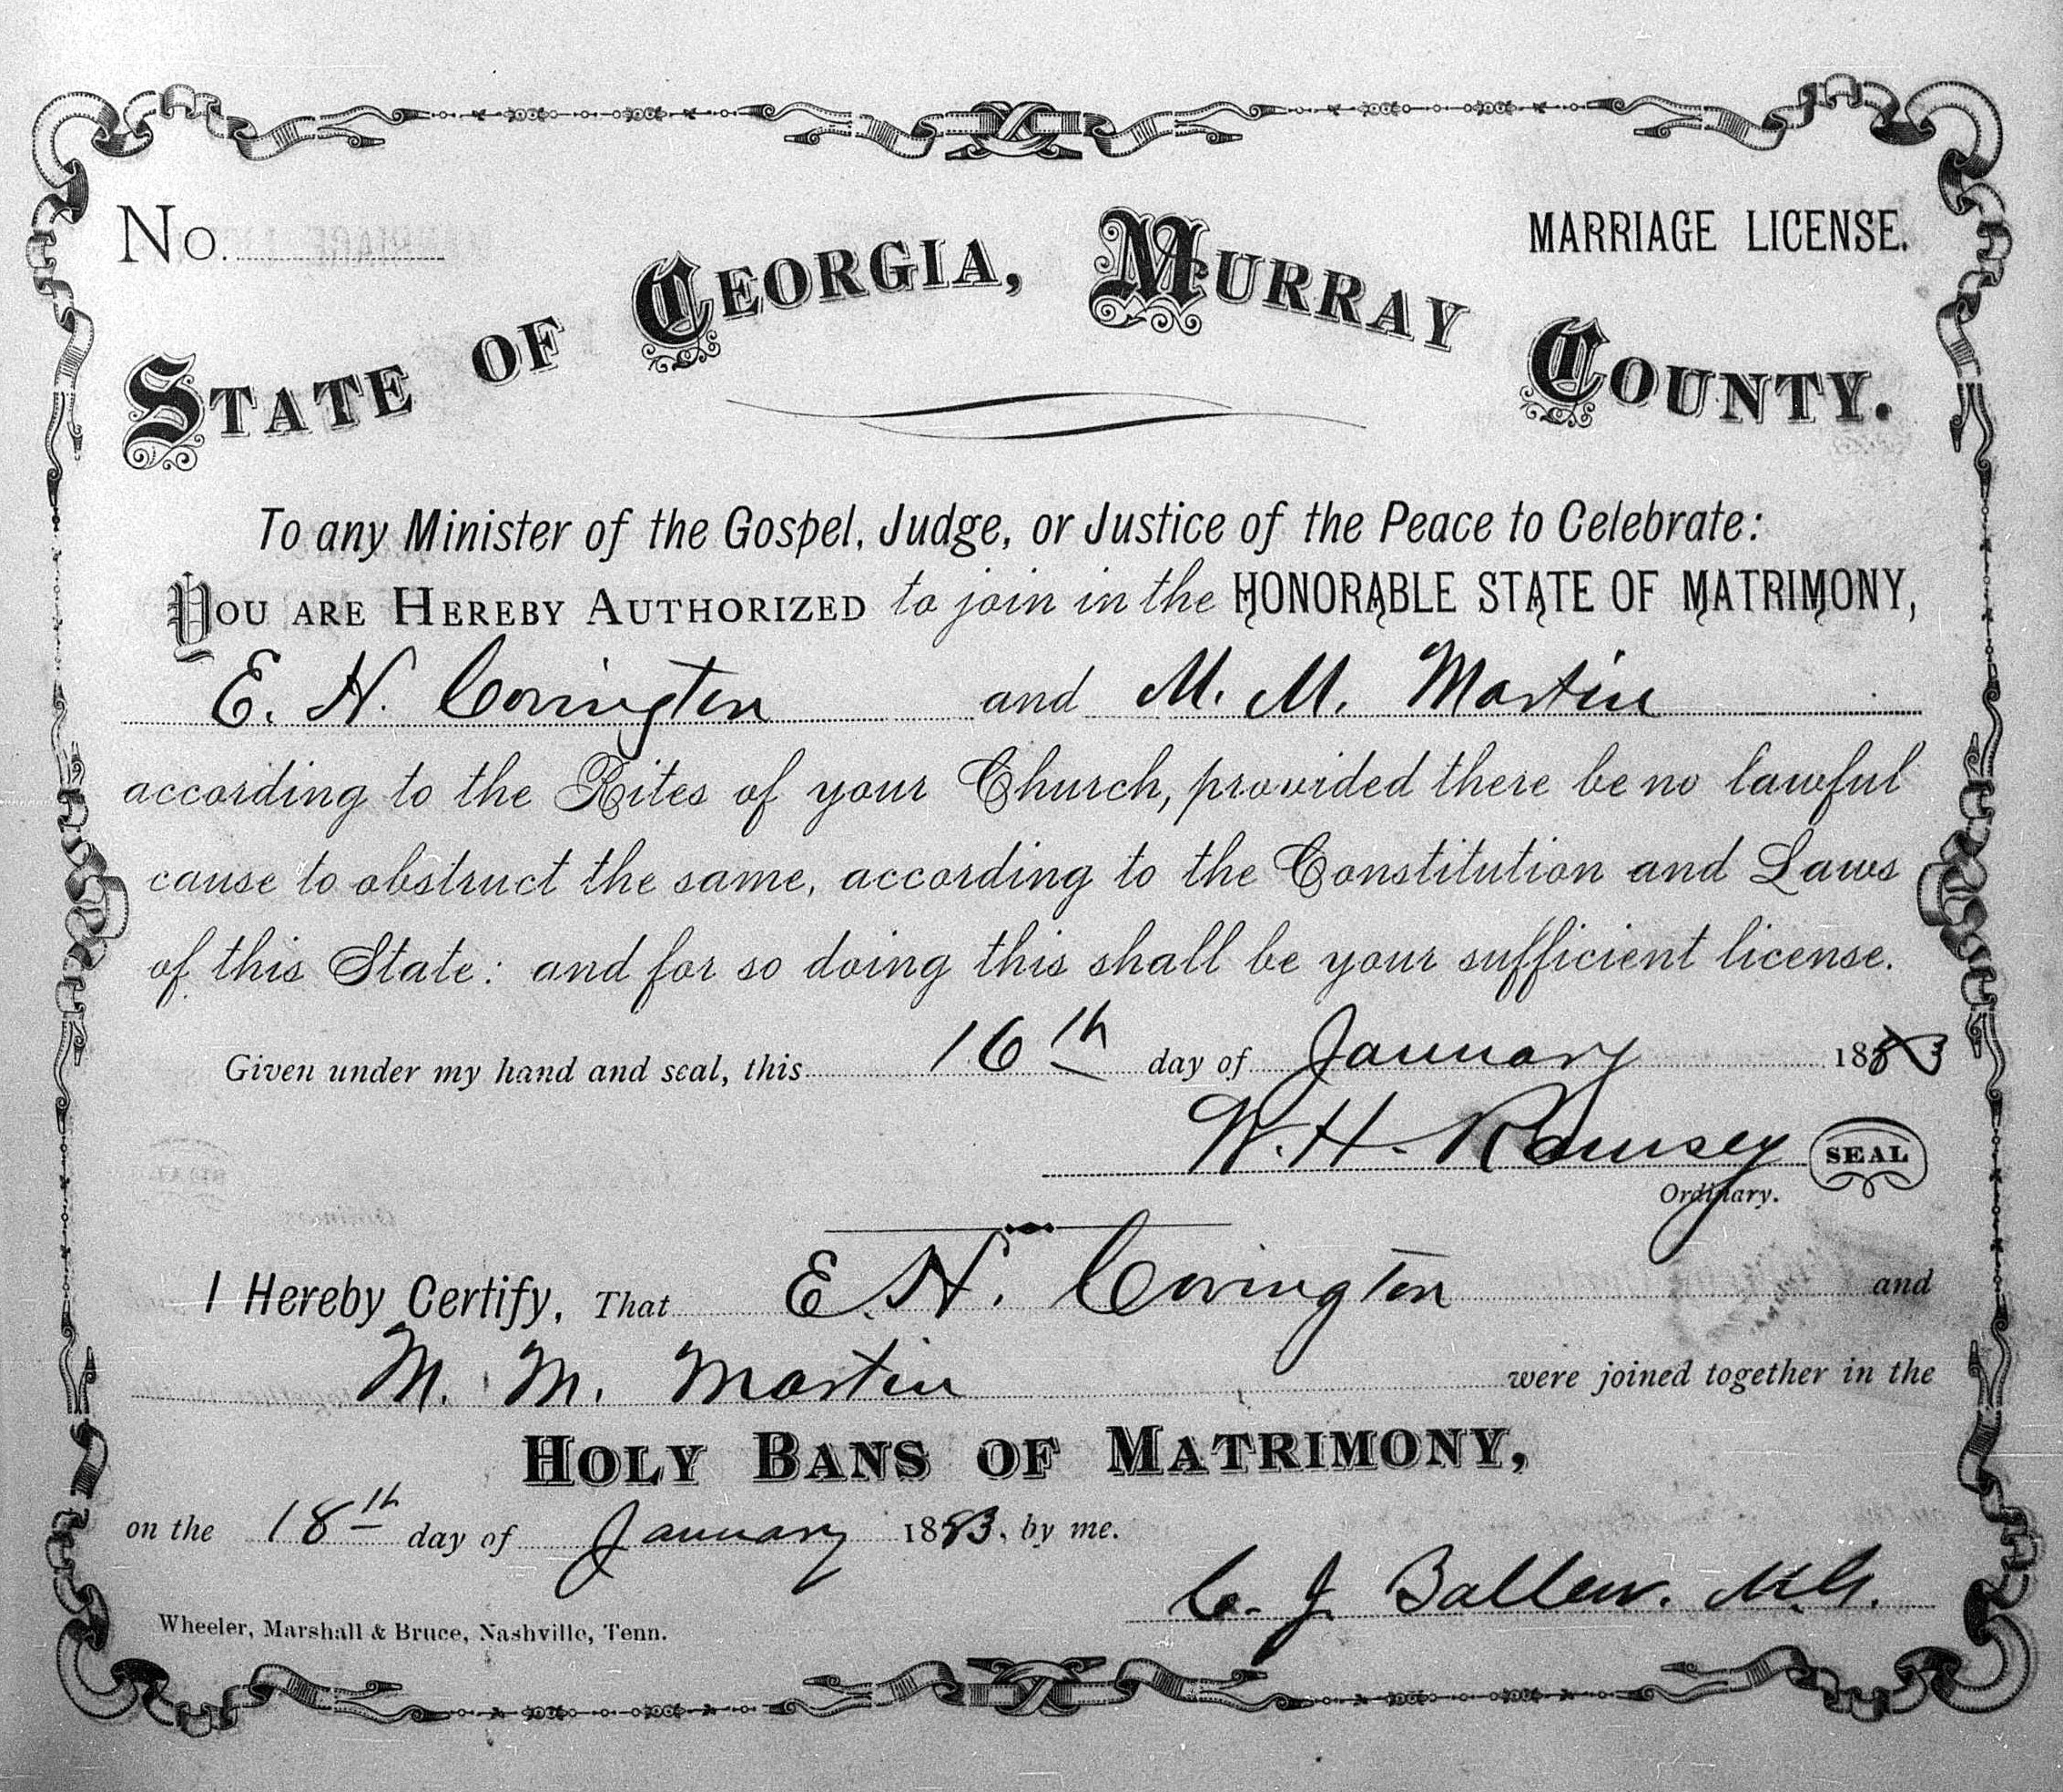 No. MARRIAGE LICENSE.
STATE OF GEORGIA, MURRAY COUNTY.
To any Minister of the Gospel, Judge, or Justice of the Peace to Celebrate:
YOU ARE HEREBY AUTHORIZED to join in the HONORABLE STATE OF MATRIMONY,
E. H. Covington and M. M. Martin
according to the Rites of your Church, provided there be no lawful
cause to obstruct the same, according to the Constitution and Laws
of this State: and for so doing this shall be your sufficient license.
Given under my hand and seal, this 16th day of January 1883
W. H. Ramsey SEAL
Ordinary.
I Hereby Certify, That E. H. Covington and
M. M. Martin were joined together in the
HOLY BANS OF MATRIMONY,
on the 18th day of January 1883, by me.
C. J. Ballew. M.G.
Wheeler, Marshall & Bruce, Nashville, Tenn.